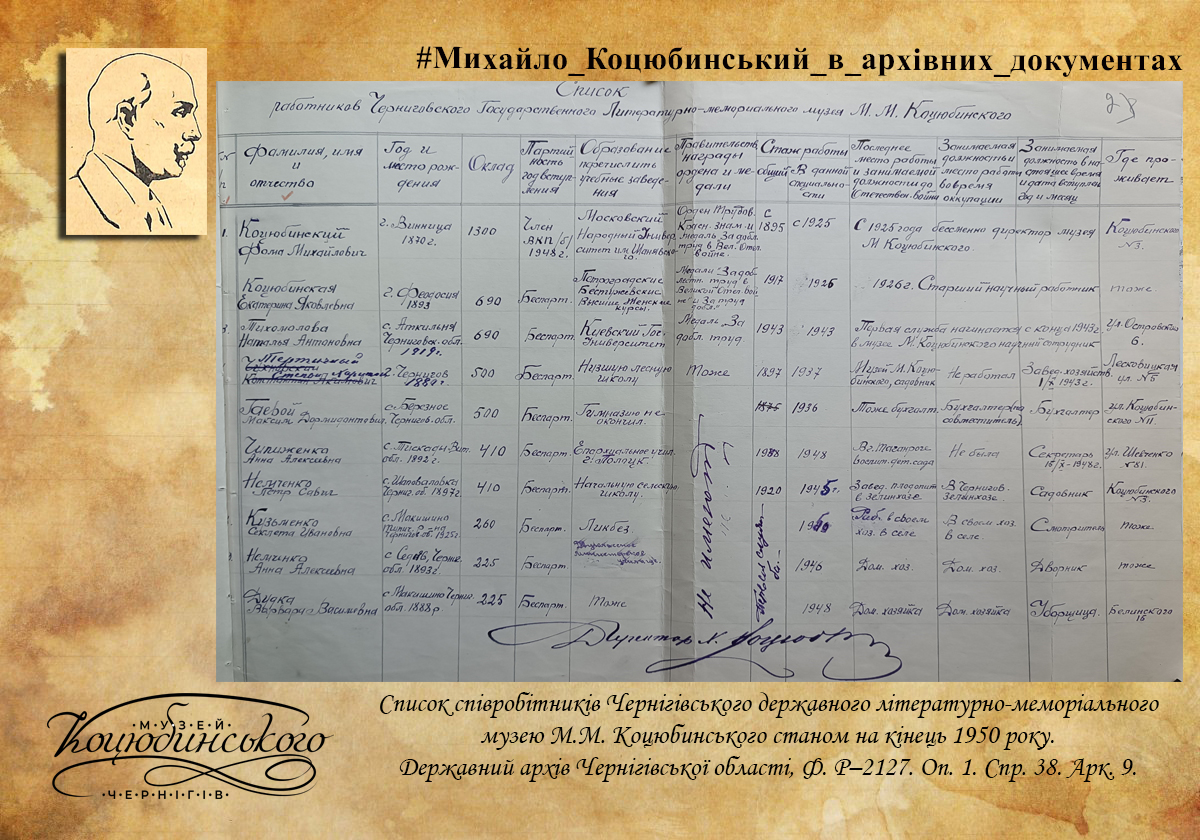 #Михайло_Коцюбинський_в_архівних_документах
Список
работников Черниговского Государственного Литературно-мемориального музея М. М. Коцюбинского
Фамилия, имя
и
отчество
Год и
место рож-
дения
Оклад
Партий
ность
год вступ-
ления
Образование
перечислить
учебные заведе-
ния
Правительств.
награды
ордена и ме-
дали
Стаж работы
общий
В данной
специально-
сти
Последнее
место работы
и занимаемой
должности до
Отечествен. война
Занимаемая
должность и
место работы
во время
оккупации
Занимаемая
должность в на-
стоящее время
и дата вступлен.
год и месяц
Где про-
живает
1. Коцюбинский
Фома Михайлович
г. Винница
1870 г.
1300
Член
ВКП/б/
1948 г.
Московский
Народный Универ-
ситет им. Шанявско-
го
Орден Трудов.
Красн. знам. и
медаль За добл.
труд в Вел. Отеч.
войне.
с
1895
с 1925
С 1925 года бессменно директор музея
М Коцюбинского.
Коцюбинского
№3.
Коцюбинская
Екатерина Яковлевна
г. Феодосия
1893
690
Беспарт.
Петроградские
Бестужевские
Высшие Женские
курсы.
1917
1926
1926 г. Старший научный работник
тоже
3. Тихомолова
Наталья Антоновна
Черниговск. обл.
1919 г.
690
Беспарт.
Киевский Гос.
Университет
Медаль „За
добл. труд
1943
1943
Первая служба начинается с конца 1943 г.
в музее М. Коцюбинского научный сотрудник
ул. Островского
6.
г. Чернигов
1880 г.
500
Беспарт.
Низшую лесную
школу
Тоже
1897
1937
Музей М. Коцю-
бинского, садовник
Не работал
Завед. хозяйств.
1/X 1943 г.
Лесковицкая
ул. №5
Гаевой
Максим Дормидонтович
с. Березное
Чернигов. обл.
500
Беспарт.
Гимназию не
окончил.
1875
1936
Тоже бухгалт.
Бухгалтер (по
совместитель)
Бухгалтер
ул. Коцюбин-
ского №11.
Чиженко
Анна Алексеевна
обл. 1892 г.
410
Беспарт.
Епархиальное учил.
г. Полоцк.
1948
В г. Таганроге
воспит. дет. сада
Не была
Секретарь
ул. Шевченко
№81.
Немченко
Петр Савич
с. Шаповаловка
Черниг. об. 1897 г.
410
Беспарт.
Начальную сельскую
школу.
1920
1945 г.
Завед. плодопит.
в Зеленхозе
В Чернигов.
Зеленхозе
Садовник
Коцюбинского
№3.
Кузьменко
Секлета Ивановна
с. Макишино
Чернигов. об. 1925 г.
260
Беспарт.
Ликбез.
1950
Раб. в своем
хоз. в селе
В своем хоз.
в селе.
Смотритель
тоже
Немченко
Анна Алексеевна
с. Седнев, Черниг.
обл. 1893 г.
225
Беспарт
1946
Дом. хоз.
Дом. хоз.
Дворник
тоже
Дидка
Варвара Василевна
с. Макишино Черниг.
обл. 1888 г.
225
Беспарт.
Тоже
1948
Дом. хозяйка
Дом. хозяйка
Уборщица.
Белинского
16
Не имеют
Директор Х. Коцюб
МУЗЕЙ
Коцюбинського
ЧЕРНІГІВ
Список співробітників Чернігівського державного літературно-меморіального
музею М.М. Коцюбинського станом на кінець 1950 року.
Державний архів Чернігівської області, Ф. Р–2127. Оп. 1. Спр. 38. Арк. 9.